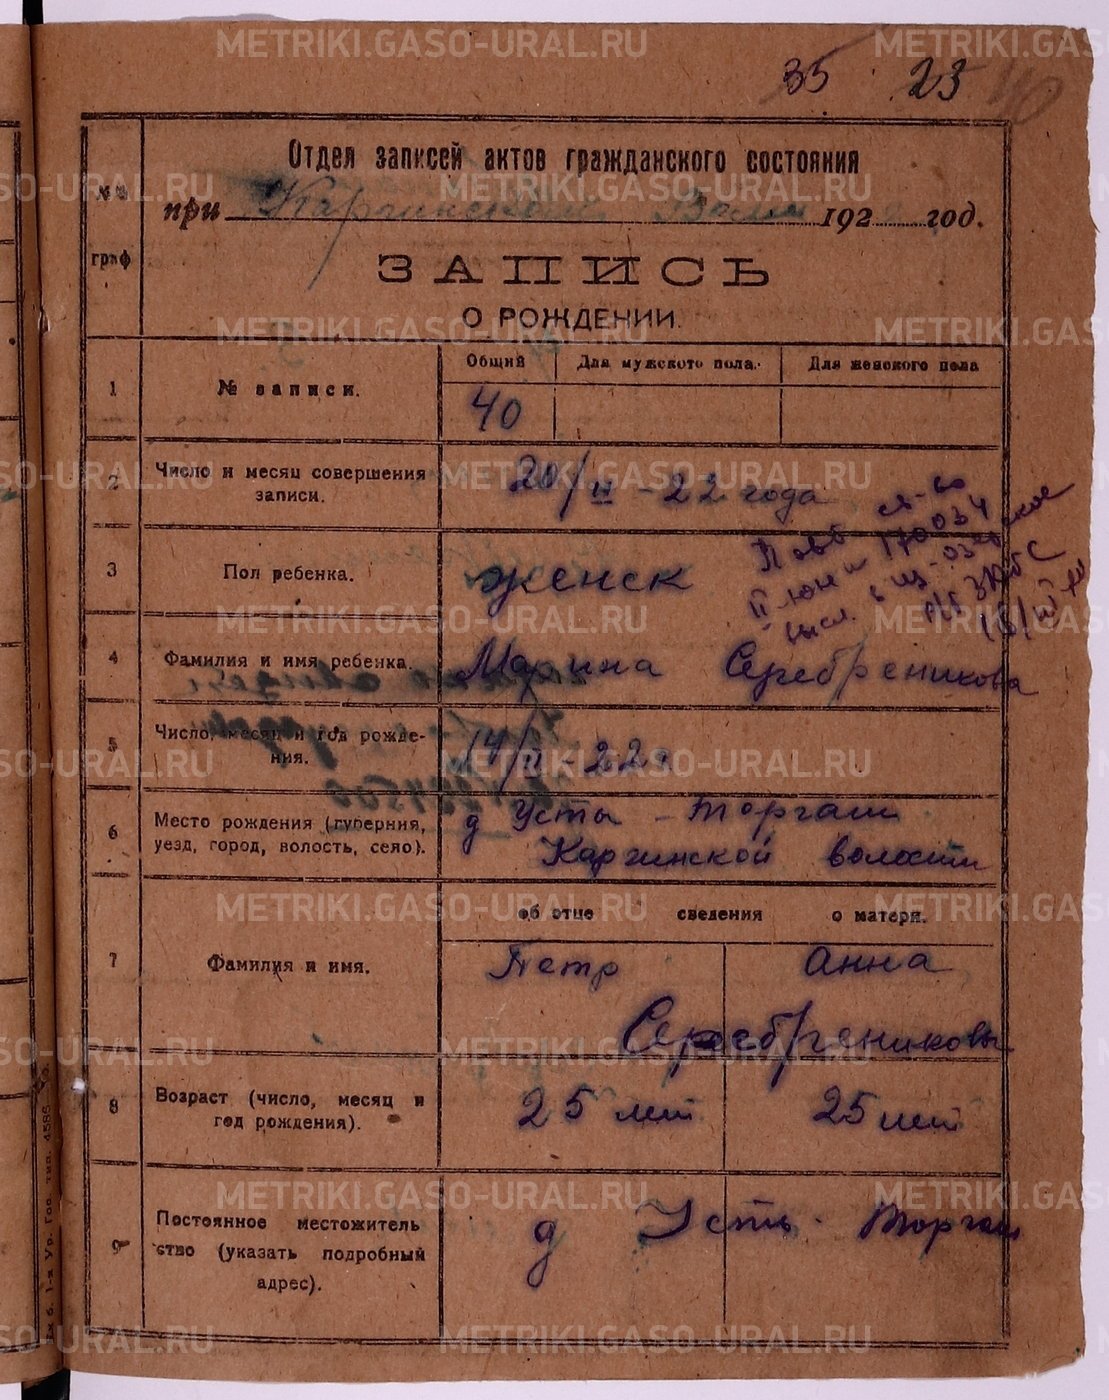 35 23 40
Отдел записей актов гражданского состояния
№№ граф
при Каргинской Вол 192 год.
ЗАПИСЬ
О РОЖДЕНИИ.
Общий Для мужского пола. Для женского пола
1 № записи. 40
2 Число и месяц совершения
записи. 20/II - 22 года
3 Пол ребенка. женск
Повт св-во
170034
4 Фамилия и имя ребенка. Марина Серебреникова
5 Число, месяц и год рожде-
ния. 14/II - 22 г
6 Место рождения (губерния,
уезд, город, волость, село).
д Усть - Торгаш
Каргинской волости
об отце сведения о матери.
7 Фамилия и имя. Петр Анна
Серебрениковы
8 Возраст (число, месяц и
год рождения). 25 лет 25 лет
9 Постоянное местожитель
ство (указать подробный
адрес). д Усть - Торгаш
1-я Ур. Гос. тип. 4586
METRIKI.GASO-URAL.RU